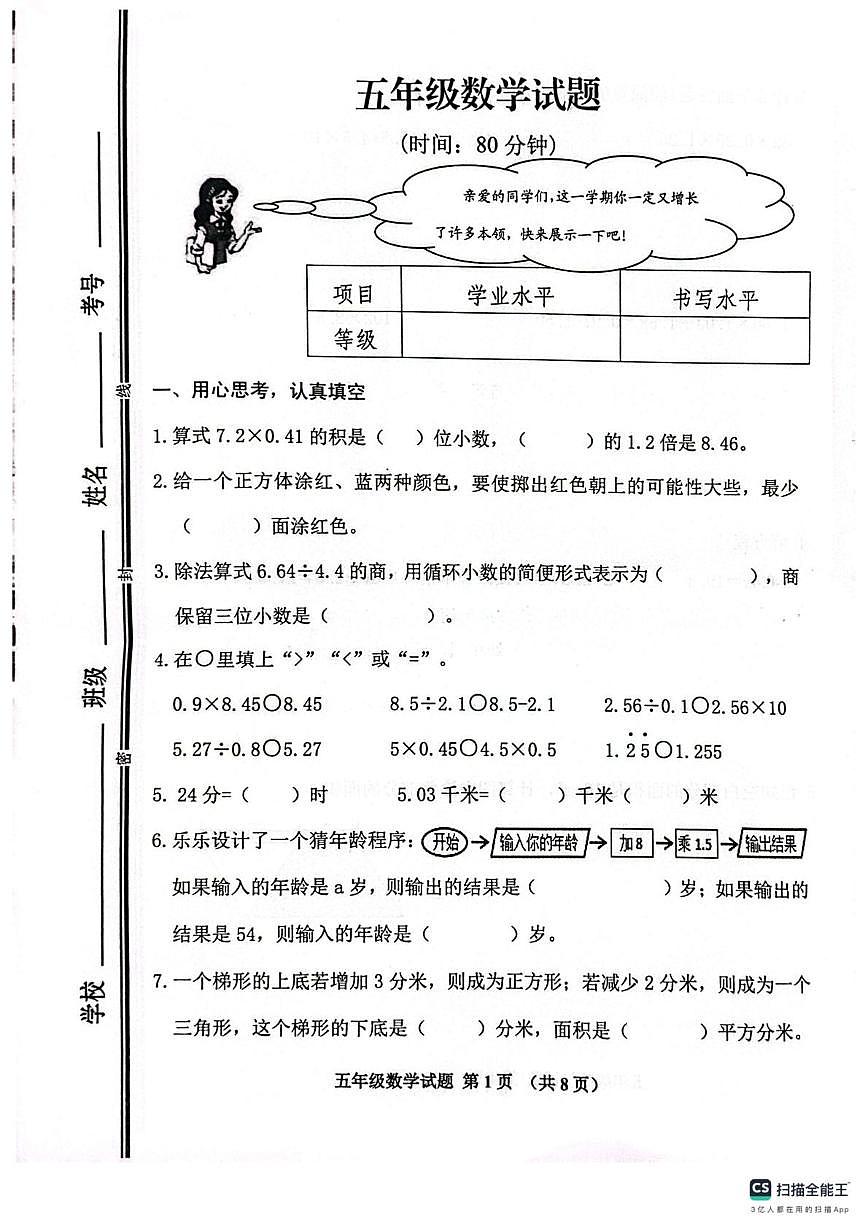 五年级数学试题
(时间：80 分钟)
亲爱的同学们,这一学期你一定又增长
了许多本领，快来展示一下吧!
项目 学业水平 书写水平
等级
考号
姓名
班级
学校
线
封
密
一、用心思考，认真填空
1.算式 7.2×0.41 的积是（ ）位小数，（ ）的 1.2 倍是 8.46。
2.给一个正方体涂红、蓝两种颜色，要使掷出红色朝上的可能性大些，最少
（ ）面涂红色。
3.除法算式 6.64÷4.4 的商，用循环小数的简便形式表示为（ ），商
保留三位小数是（ ）。
4.在○里填上“>”“<”或“=”。
0.9×8.45○8.45 8.5÷2.1○8.5-2.1 2.56÷0.1○2.56×10
5.27÷0.8○5.27 5×0.45○4.5×0.5 1.2̇5̇○1.255
5. 24 分=（ ）时 5.03 千米=（ ）千米（ ）米
6.乐乐设计了一个猜年龄程序：开始→输入你的年龄→加 8→乘 1.5→输出结果
如果输入的年龄是 a 岁，则输出的结果是（ ）岁；如果输出的
结果是 54，则输入的年龄是（ ）岁。
7.一个梯形的上底若增加 3 分米，则成为正方形；若减少 2 分米，则成为一个
三角形，这个梯形的下底是（ ）分米，面积是（ ）平方分米。
五年级数学试题 第 1 页 （共 8 页）
CS 扫描全能王
3亿人都在用的扫描App